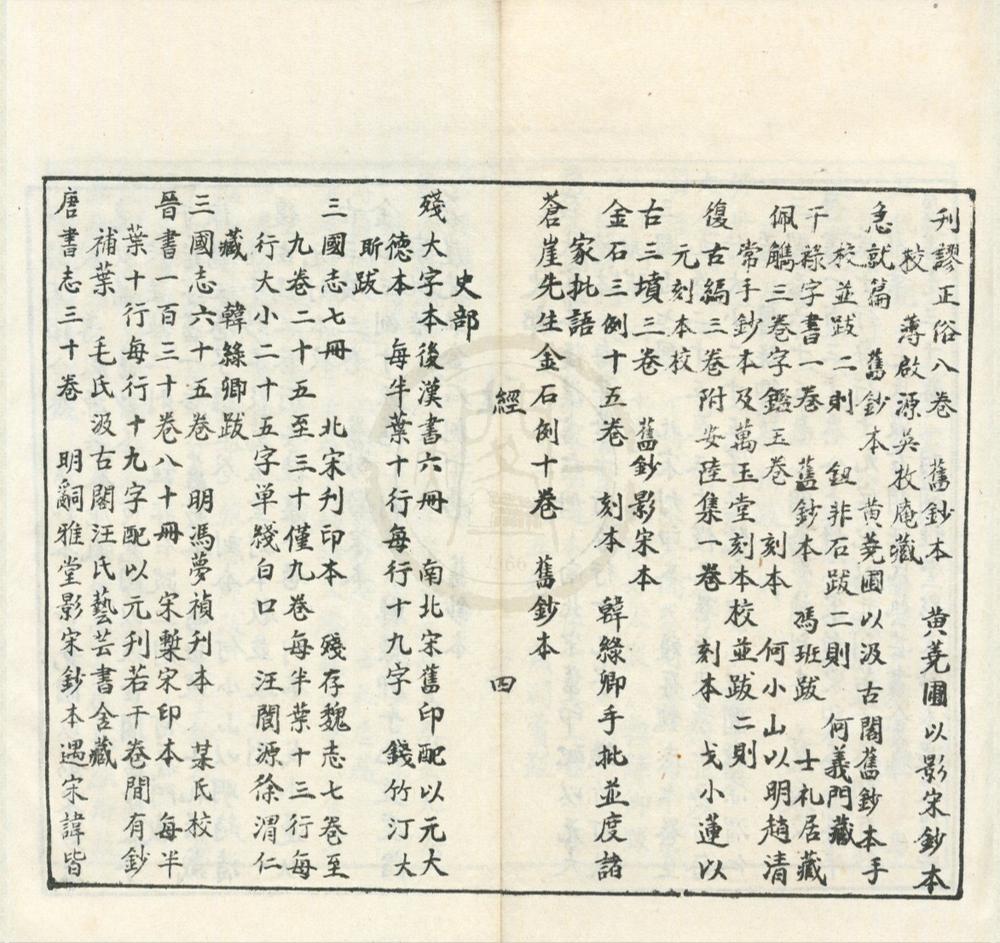 刊謬正俗八卷　舊鈔本　黄蕘圃以影宋鈔本
校　薄啟源吳枚庵藏
急就篇　舊鈔本　黄蕘圃以汲古閣舊鈔本手
校並跋二則　鈕非石跋二則　何義門藏
干祿字書一卷　舊鈔本　馮班跋　士礼居藏
佩觿三卷字鑑五卷　刻本　何小山以明趙清
常手鈔本及萬玉堂刻本校並跋二則
復古編三卷附安陸集一卷　刻本　戈小蓮以
元刻本校
古三墳三卷　舊鈔影宋本
金石三例十五卷　刻本　韓綠卿手批並度諸
家批語
蒼崖先生金石例十卷　舊鈔本
經　四
史部
殘大字本後漢書六冊　南北宋舊印配以元大
德本　每半葉十行每行十九字　錢竹汀大
昕跋
三國志七冊　北宋刋印本　殘存魏志七卷至
九卷二十五至三十僅九卷每半葉十三行每
行大小二十五字单綫白口　汪閬源徐渭仁
藏　韓綠卿跋
三國志六十五卷　明馮夢禎刋本　某氏校
晉書一百三十卷八十冊　宋槧宋印本　每半
葉十行每行十九字配以元刋若干卷間有鈔
補葉　毛氏汲古閣汪氏藝芸書舍藏
唐書志三十卷　明嗣雅堂影宋鈔本遇宋諱皆